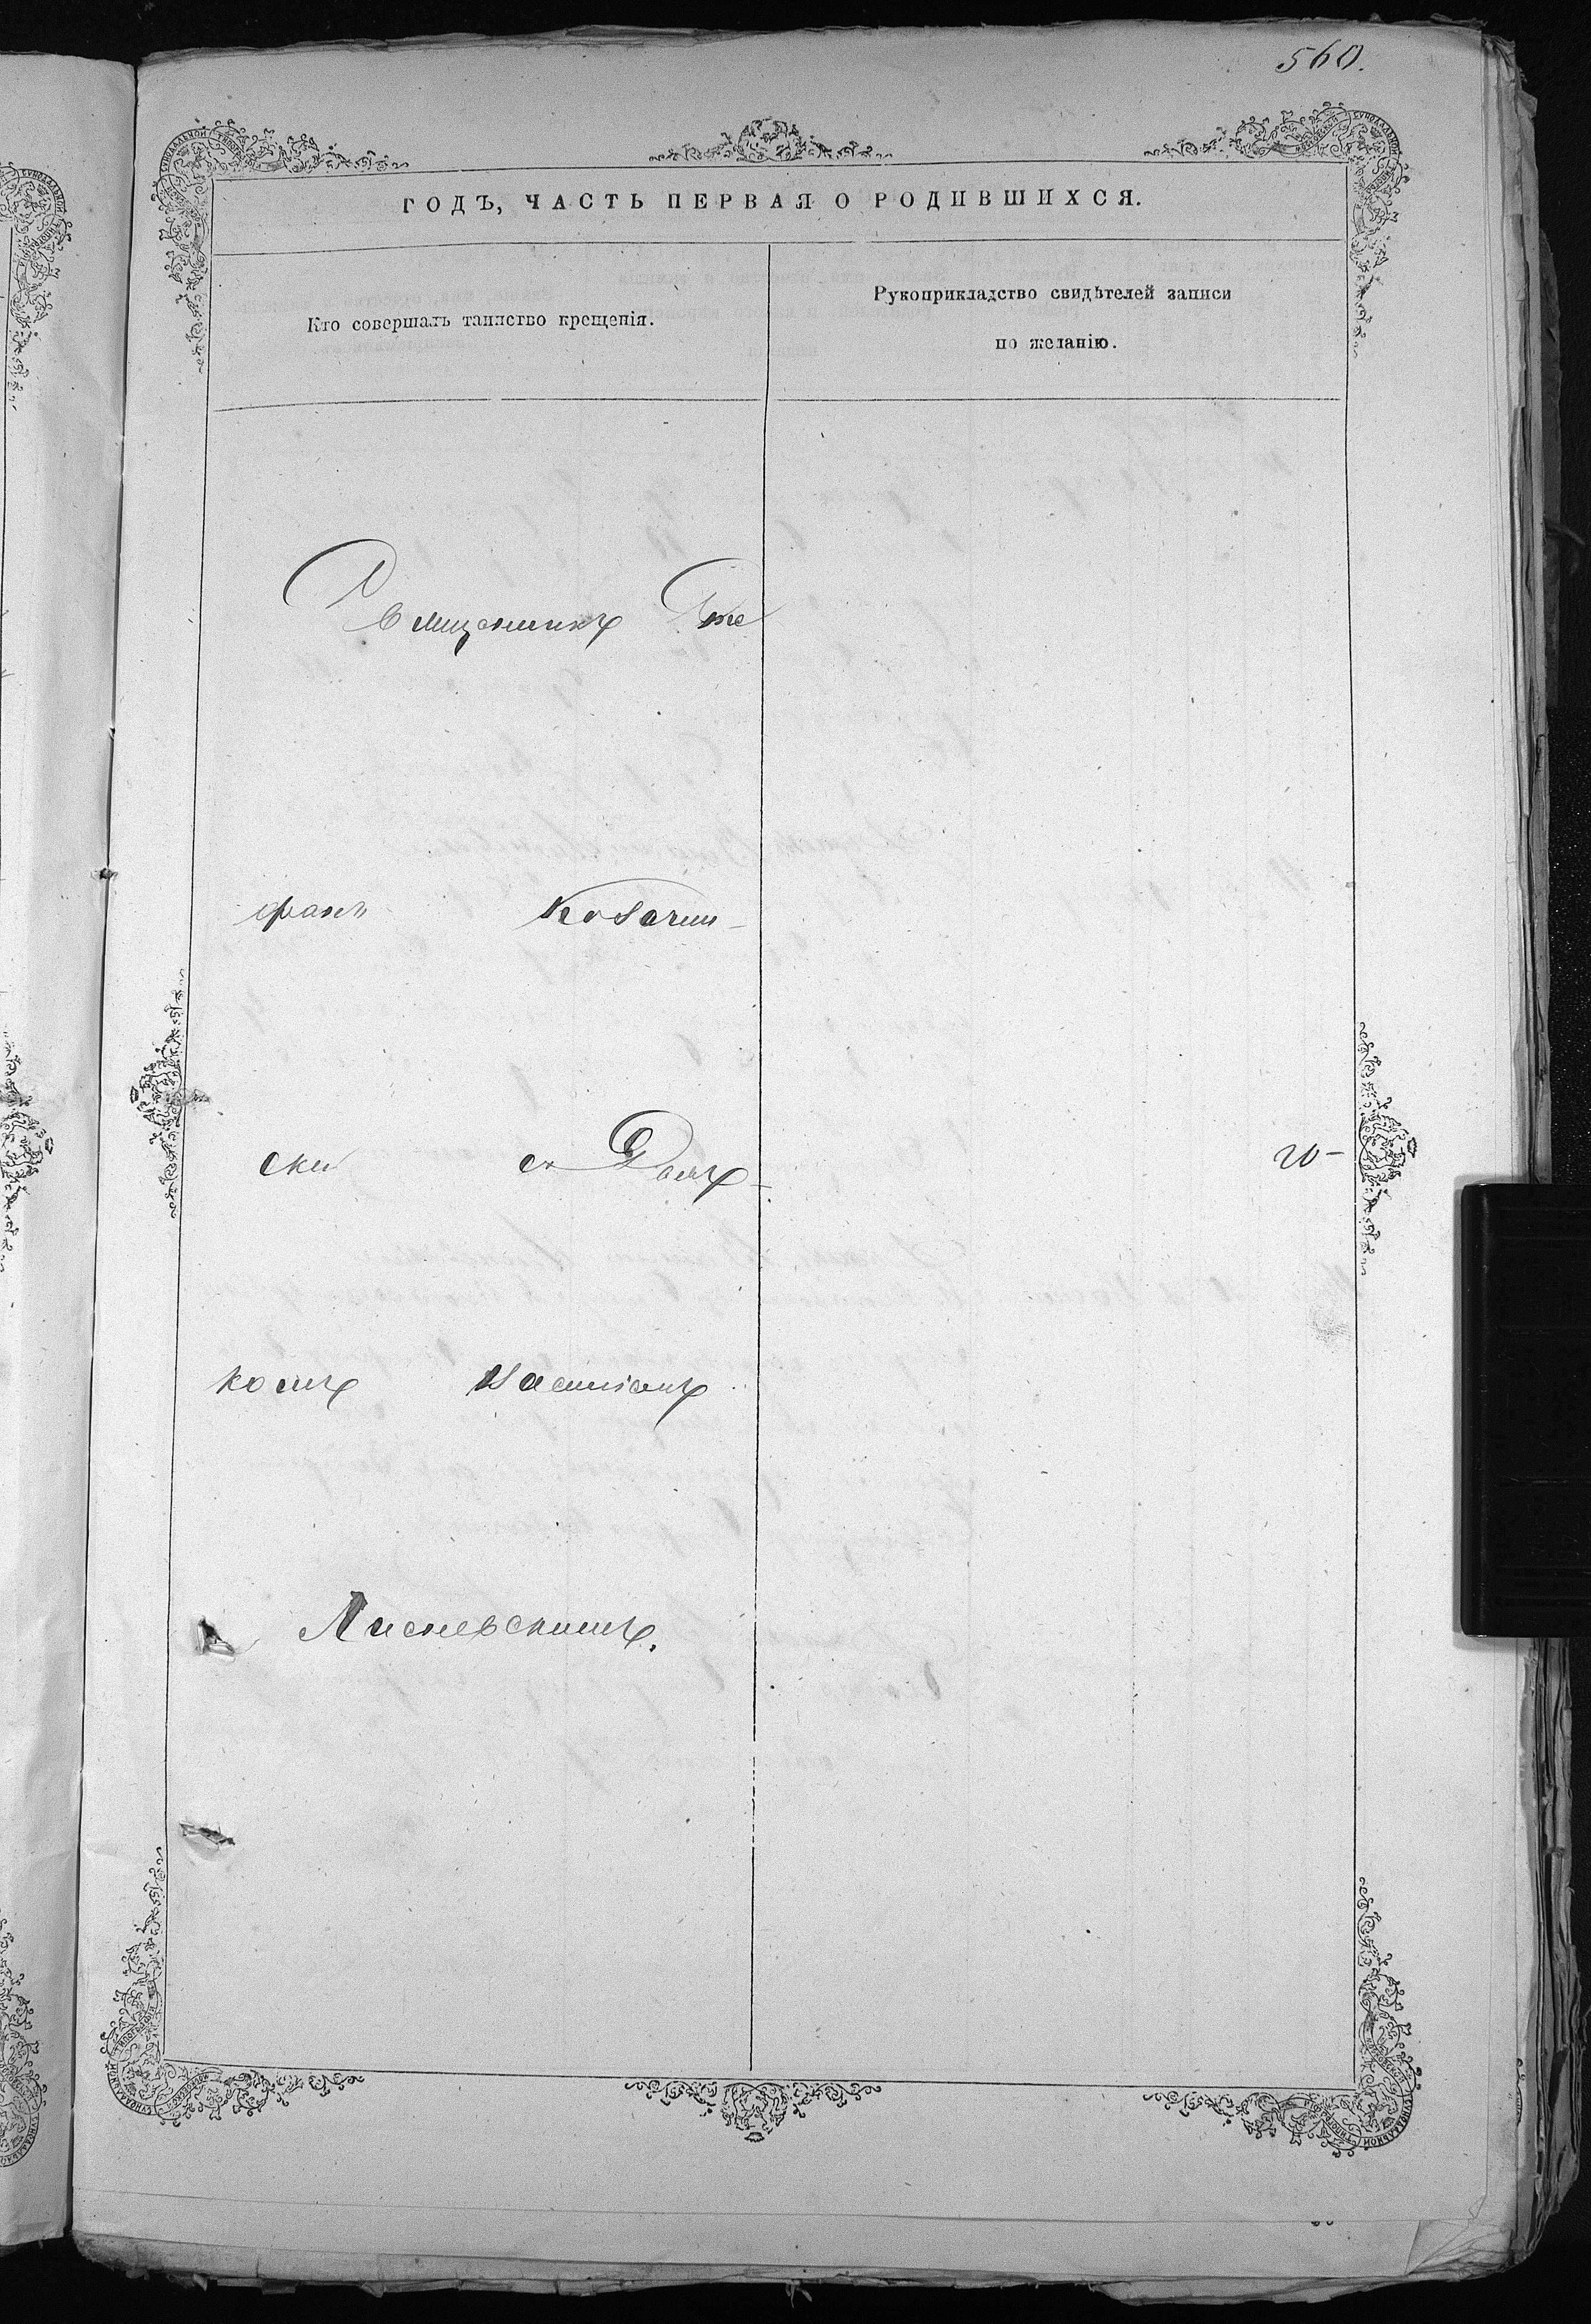 560.
ГОДЪ, ЧАСТЬ ПЕРВАЯ О РОДИВШИХСЯ.
Кто совершалъ таинство крещенія.
Рукоприкладство свидѣтелей записи
по желанію.
Священникъ Сте
фанъ
ски съ Дья
комъ
Лисневскимъ.